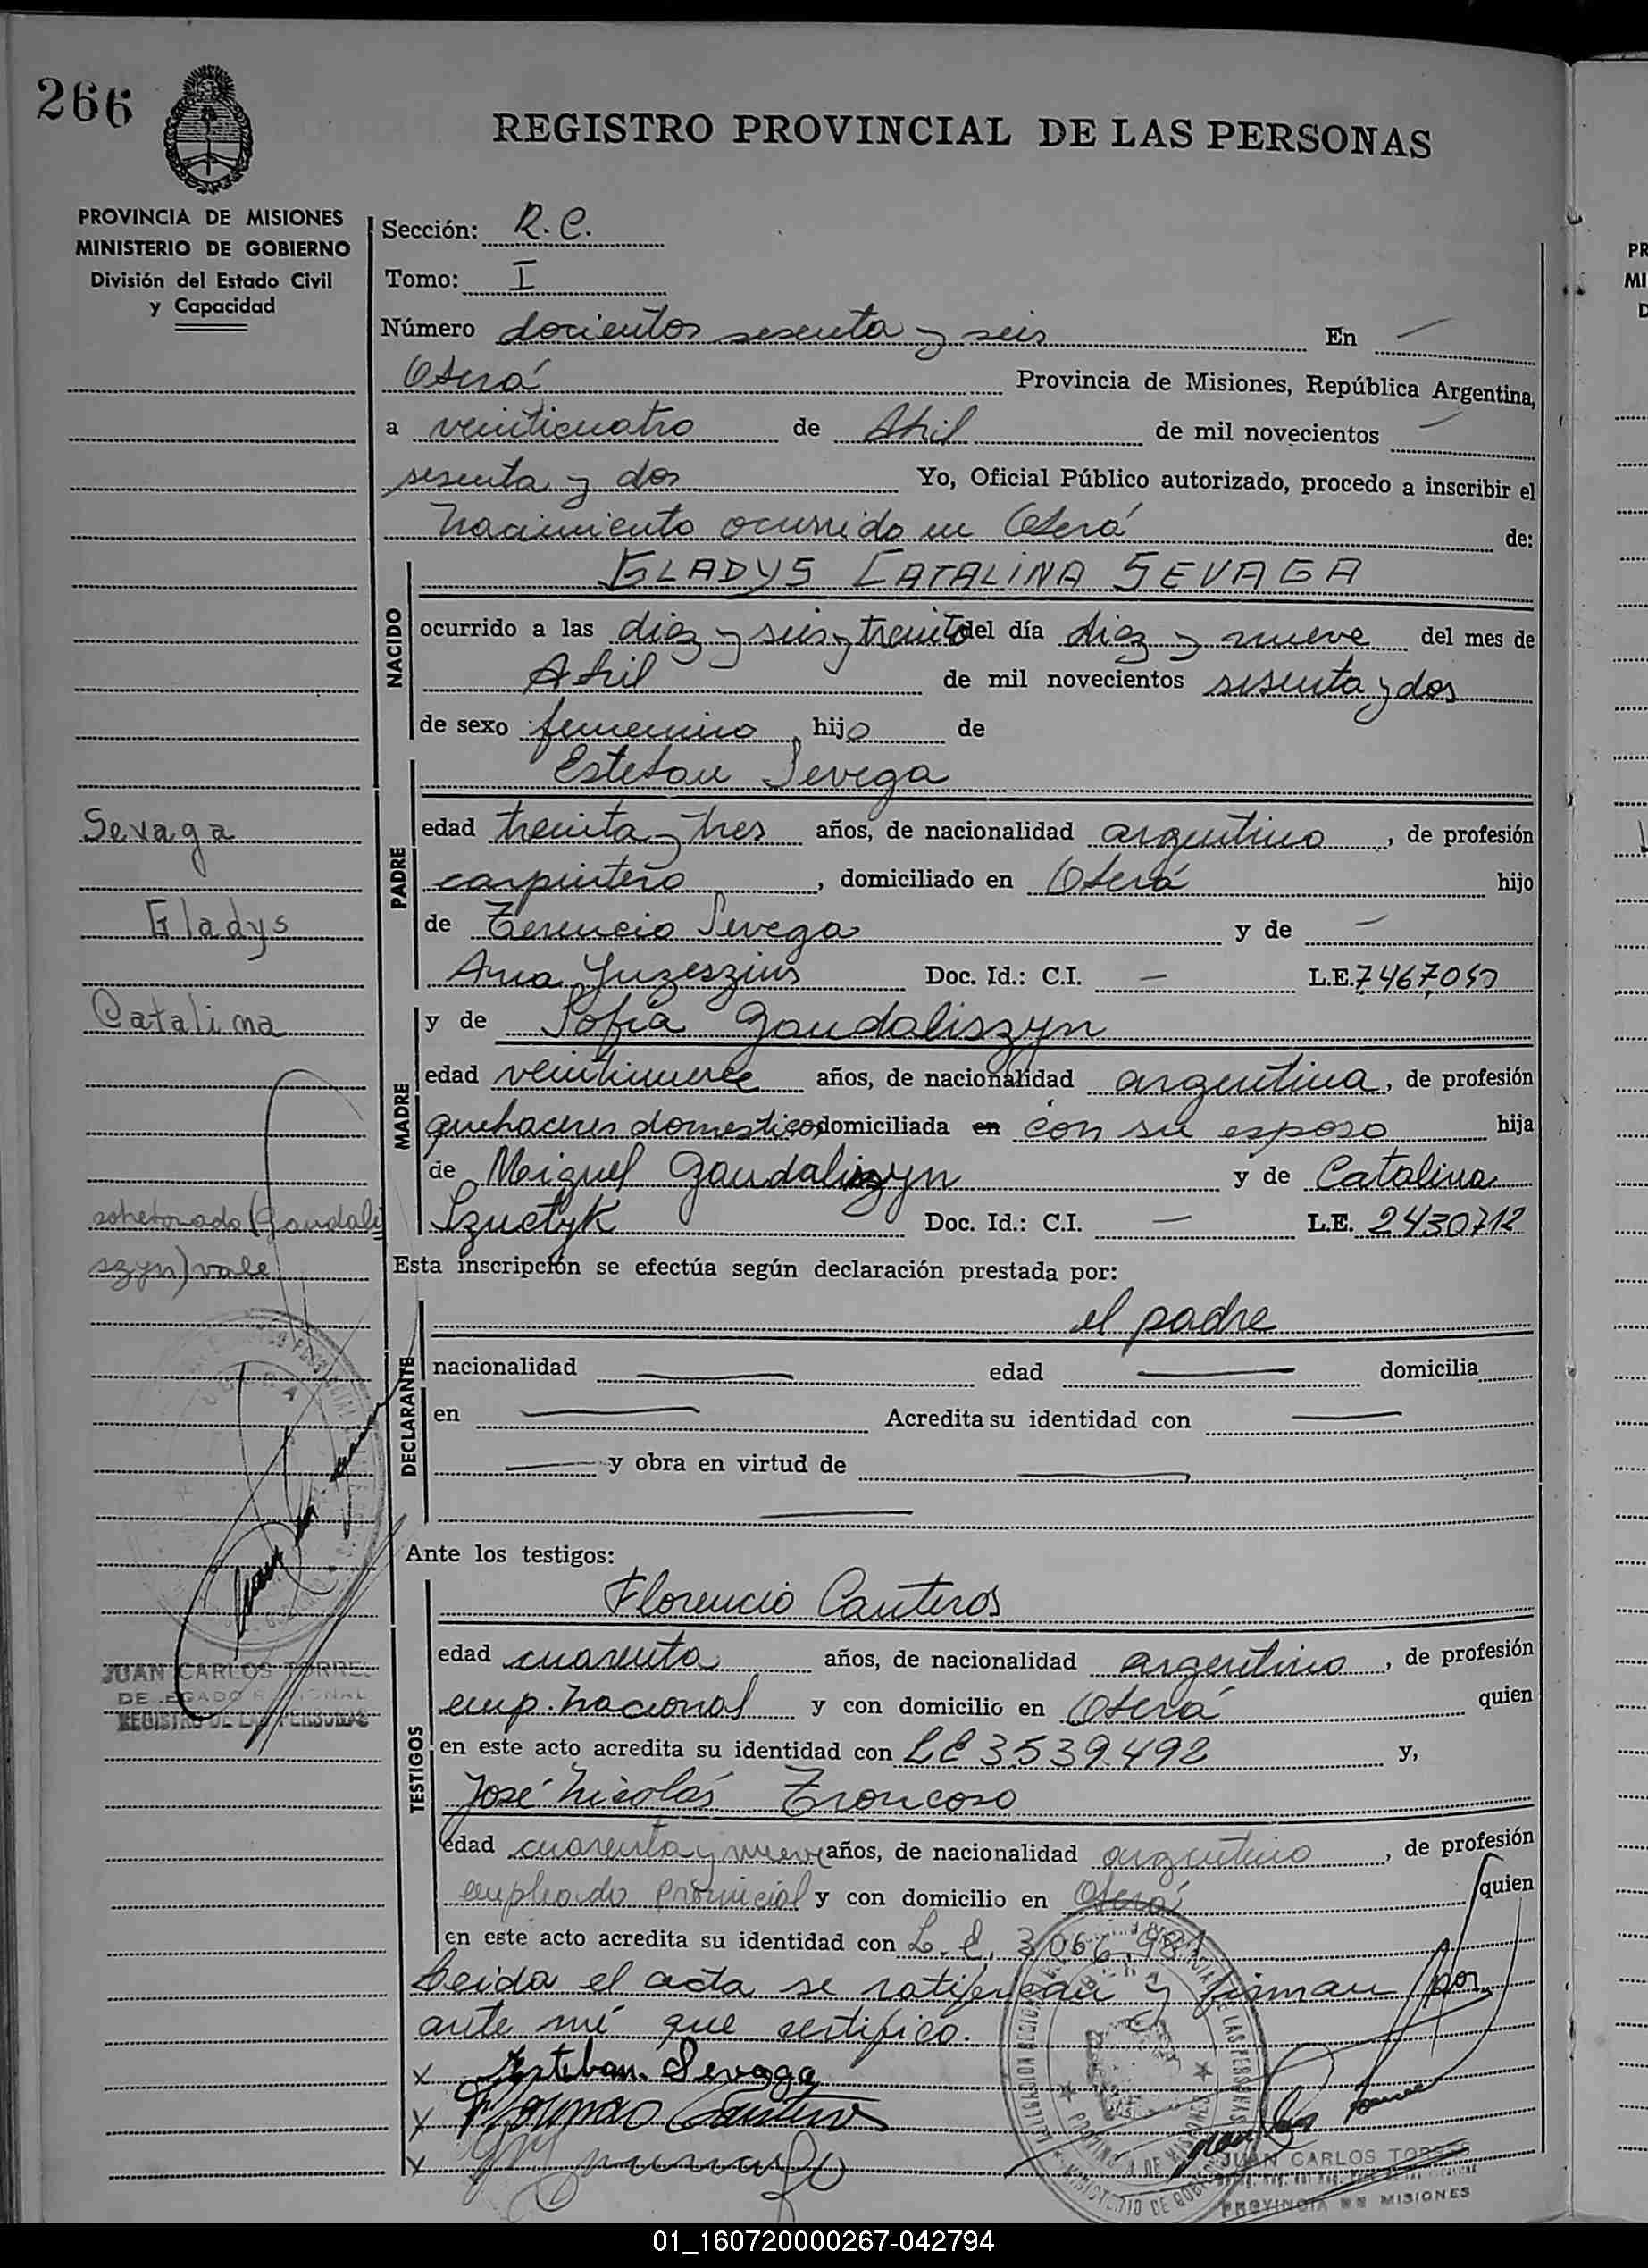 266
REGISTRO PROVINCIAL DE LAS PERSONAS
PROVINCIA DE MISIONES
MINISTERIO DE GOBIERNO
División del Estado Civil
y Capacidad
Sección: R. C.
Tomo: I
Número docientos sesenta y seis En
Oberá Provincia de Misiones, República Argentina,
a veinticuatro de Abril de mil novecientos
sesenta y dos Yo, Oficial Público autorizado, procedo a inscribir el
nacimiento ocurrido en Oberá de:
NACIDO
GLADYS CATALINA SEVAGA
ocurrido a las diez y seis y treinta del día diez y nueve del mes de
Abril de mil novecientos sesenta y dos
de sexo femenino, hijo de
PADRE
Esteban Sevega
edad treinta y tres años, de nacionalidad argentino, de profesión
carpintero, domiciliado en Oberá hijo
de Terencio Sevega y de
Ana Juzeszius Doc. Id.: C.I. — L.E. 7467050
MADRE
y de Sofía Gaudaliszyn
edad veintinueve años, de nacionalidad argentina, de profesión
quehaceres domesticos domiciliada en con su esposo hija
de Miguel Gaudaliszyn y de Catalina
Szuctyk Doc. Id.: C.I. — L.E. 2430712
Sevaga
Gladys
Catalina
sobreborrado (Gaudali
szyn) vale
Esta inscripción se efectúa según declaración prestada por:
DECLARANTE
el padre
nacionalidad — edad — domicilia
en — Acredita su identidad con —
— y obra en virtud de —
Ante los testigos:
TESTIGOS
Florencio Cauteros
edad cuarenta años, de nacionalidad argentino, de profesión
emp. nacional y con domicilio en Oberá quien
en este acto acredita su identidad con LE 3.539.492 y,
José Nicolás Troncoso
edad cuarenta y nueve años, de nacionalidad argentino, de profesión
empleado provincial y con domicilio en Oberá quien
en este acto acredita su identidad con L. E. 3066.981
Leida el acta se ratifican y firman por
ante mí que certifico.
x Esteban Sevaga
x
x
JUAN CARLOS TORRES
DELEGADO REGIONAL
REGISTRO DE LAS PERSONAS
JUAN CARLOS TORRES
PROVINCIA DE MISIONES
01_160720000267-042794